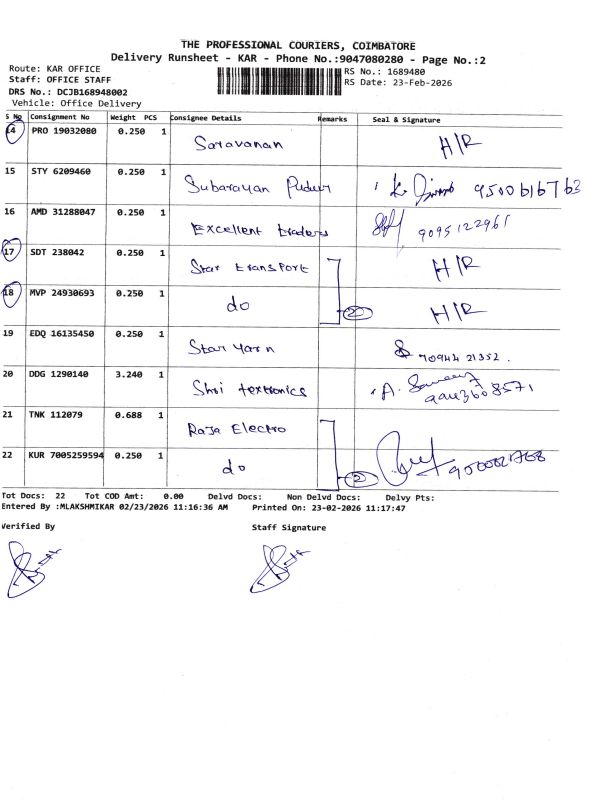 THE PROFESSIONAL COURIERS, COIMBATORE
Delivery Runsheet - KAR - Phone No.:9047080280 - Page No.:2
Route: KAR OFFICE
RS No.: 1689480
Staff: OFFICE STAFF
RS Date: 23-Feb-2026
DRS No.: DCJB168948002
Vehicle: Office Delivery
S No Consignment No Weight PCS Consignee Details Remarks Seal & Signature
14 PRO 19032080 0.250 1 Saravanan H/R
15 STY 6209460 0.250 1 Subarayan Pudur 9500616763
16 AMD 31288047 0.250 1 Excellent traders 9095122961
17 SDT 238042 0.250 1 Star transport H/R
18 MVP 24930693 0.250 1 do 2 H/R
19 EDQ 16135450 0.250 1 Star yarn 70944 21352.
20 DDG 1290140 3.240 1 Shri textronics A. 9443608571
21 TNK 112079 0.688 1 Raja Electro
22 KUR 7005259594 0.250 1 do 2
Tot Docs: 22 Tot COD Amt: 0.00 Delvd Docs: Non Delvd Docs: Delvy Pts:
Entered By :MLAKSHMIKAR 02/23/2026 11:16:36 AM Printed On: 23-02-2026 11:17:47
Verified By Staff Signature